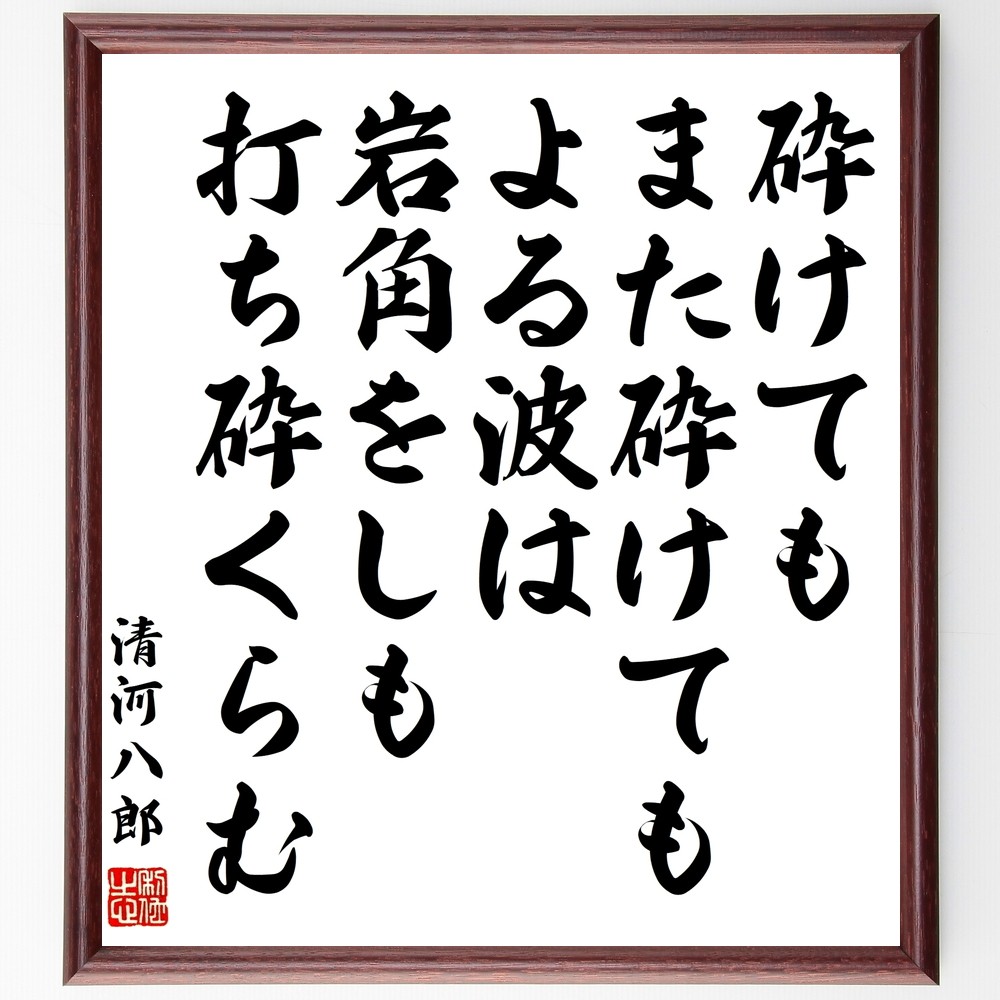 砕けても
また砕けても
よる波は
岩角をしも
打ち砕くらむ
清河八郎